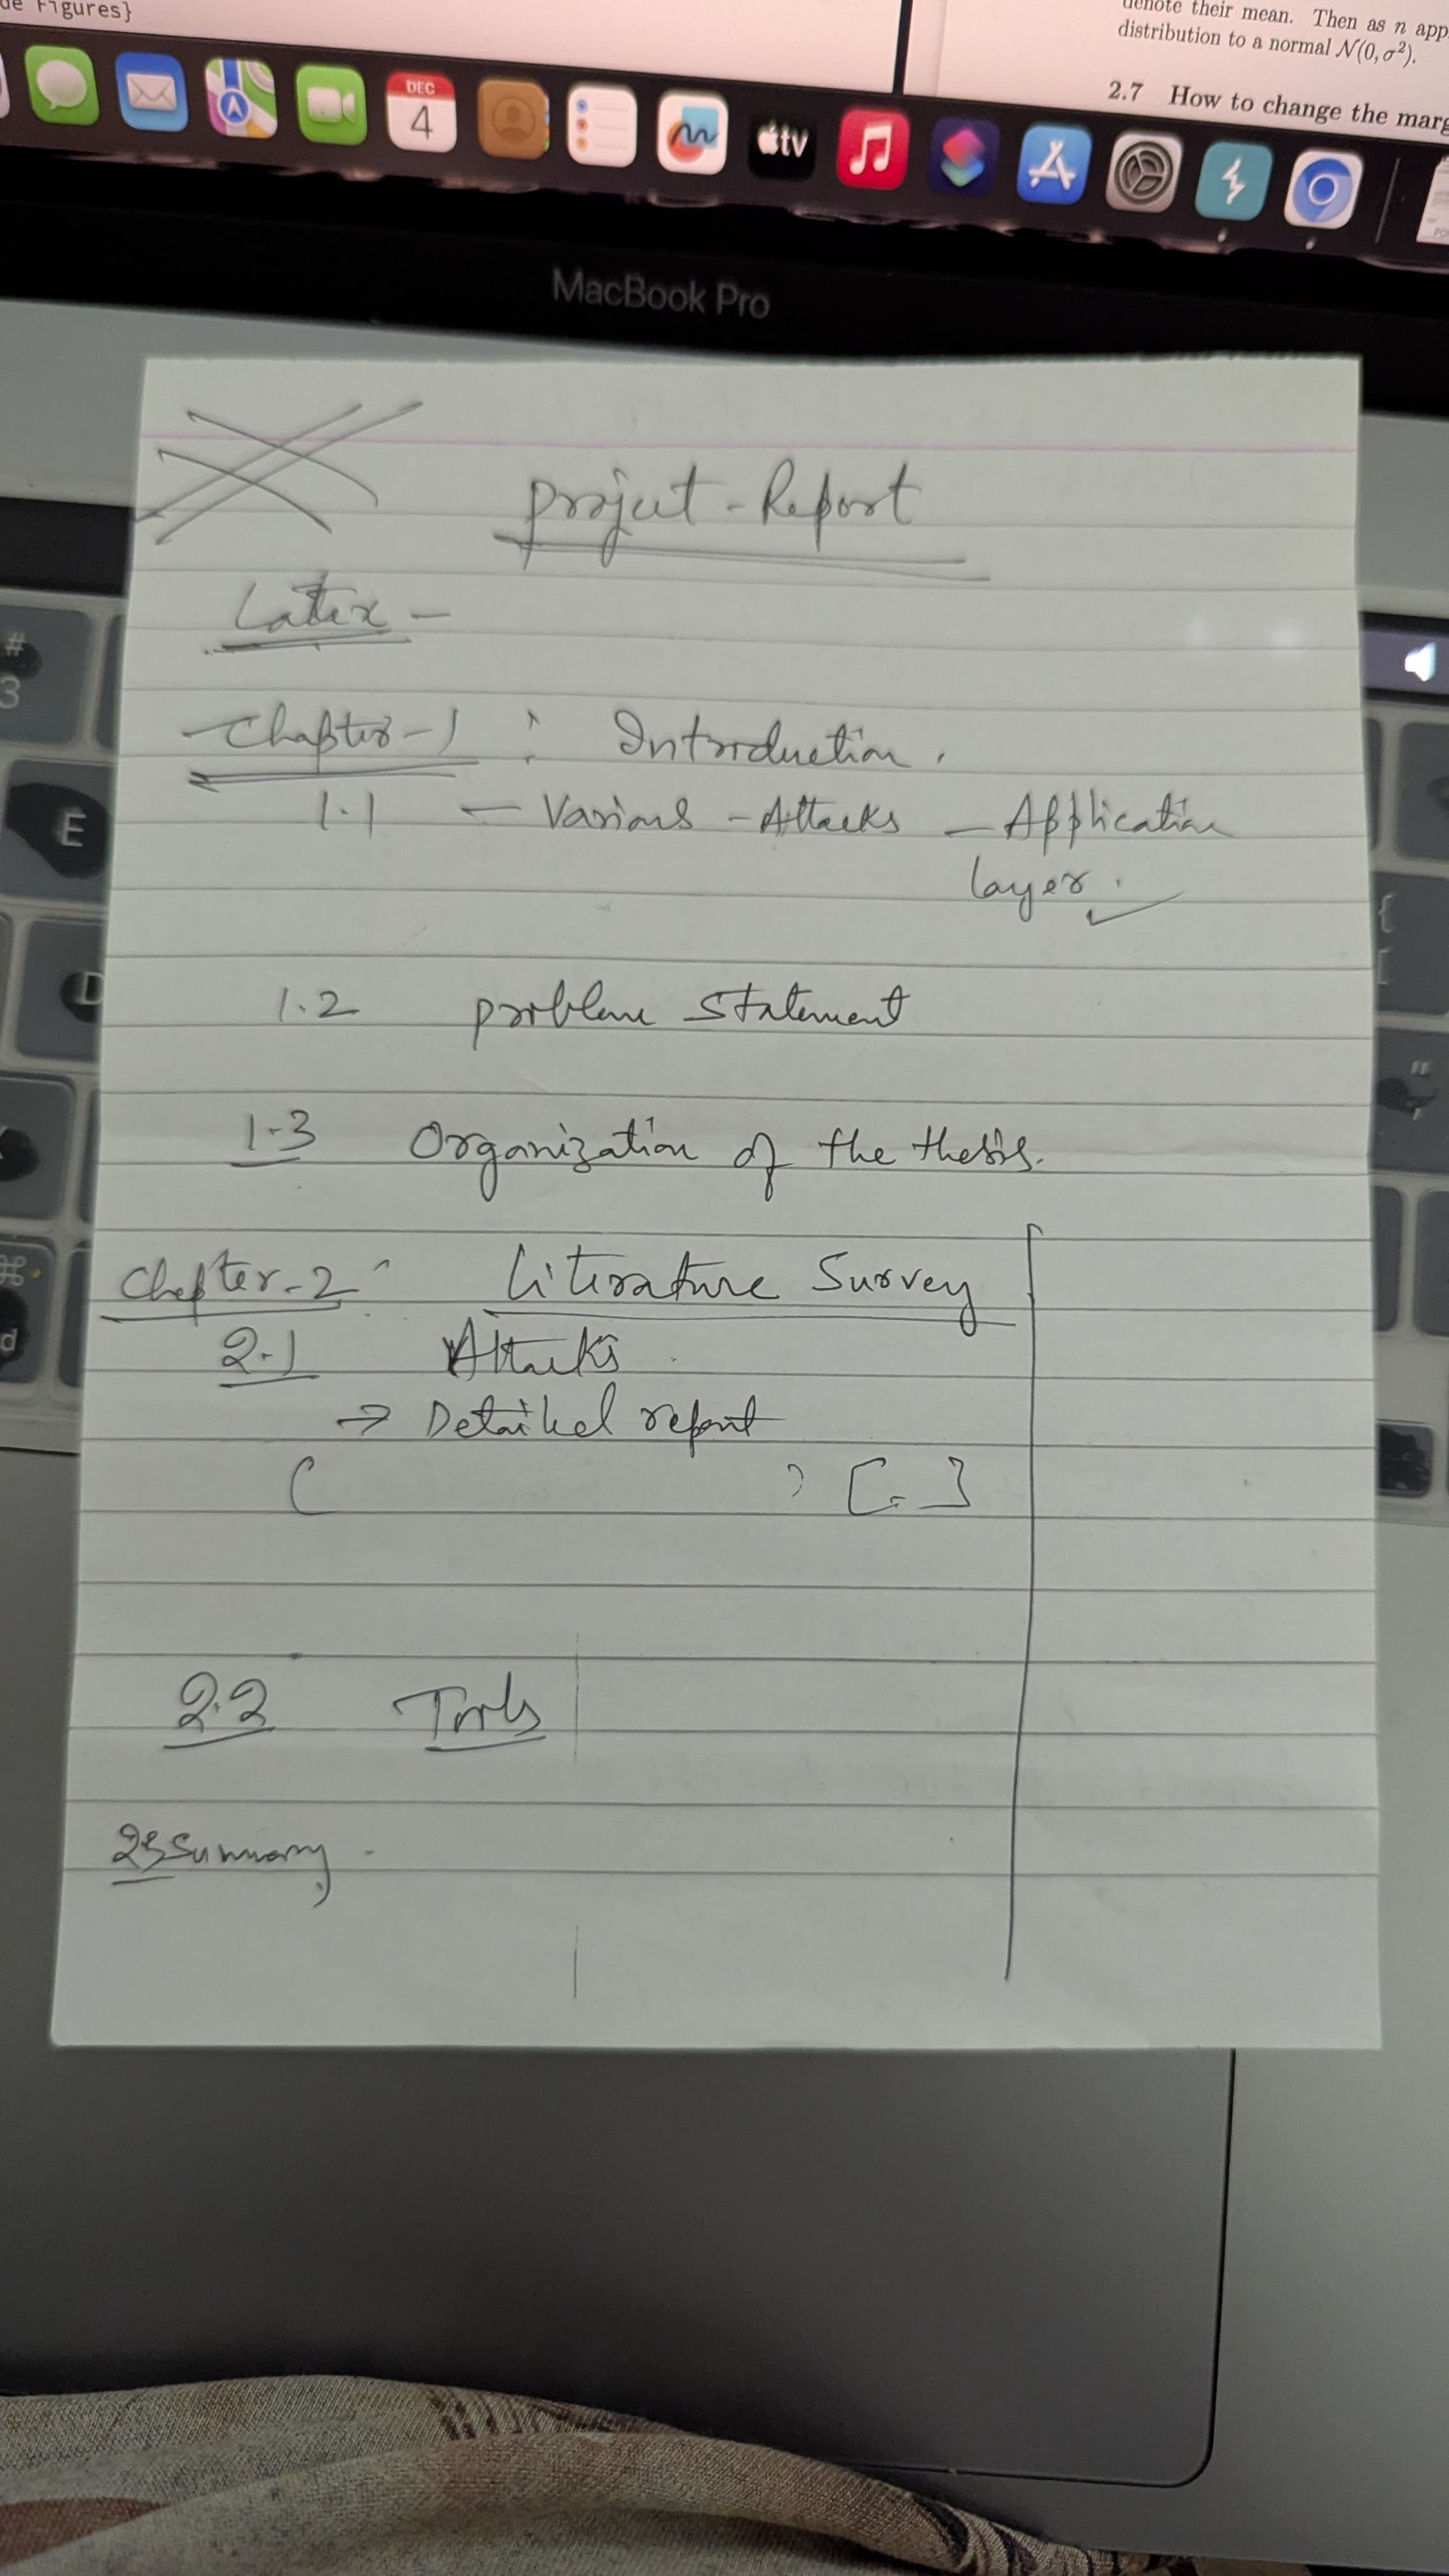 de Figures}
denote their mean. Then as n app
distribution to a normal N(0, σ²).
2.7 How to change the marg
DEC
4
tv
MacBook Pro
Project - Report
Latex -
Chapter-1 : Introduction.
1.1 - Various - Attacks - Application
layer.
1.2 problem statement
1.3 Organization of the thesis.
Chapter-2 Literature Survey
2.1 Attacks
→ Detailed report
( ) [-]
2.2 Tools
2.3 Summary.
#
3
E
D
⌘
d
{
[
"